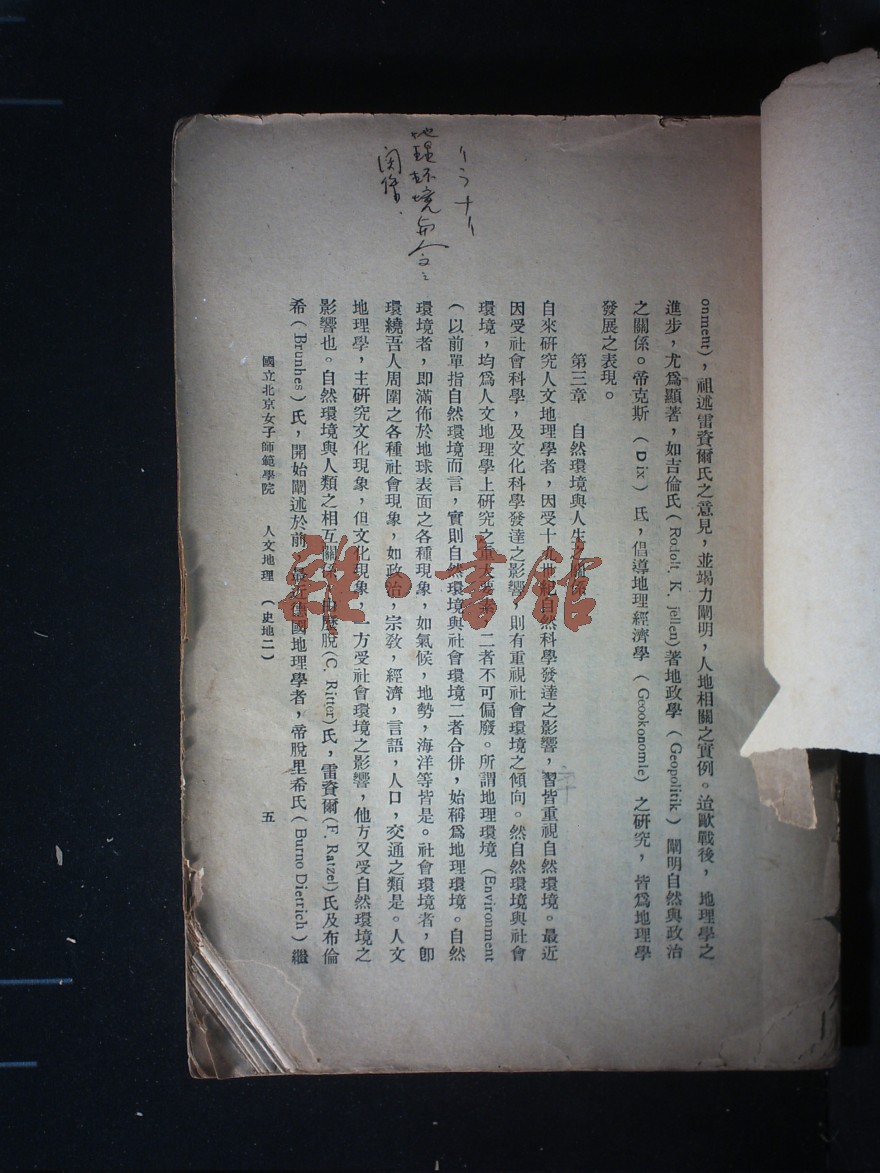 onment)，祖述雷賚爾氏之意見，並竭力闡明，人地相關之實例。迨歐戰後，地理學之
進步，尤爲顯著，如吉倫氏(Rodolt. K. jëllen)著地政學（Geopolitik）闡明自然與政治
之關係。帝克斯（Dix）氏，倡導地理經濟學（Geookonomie）之研究，皆爲地理學
發展之表現。
第三章　自然環境與人生之關係
自來研究人文地理學者，因受十九世紀自然科學發達之影響，習皆重視自然環境。最近
因受社會科學，及文化科學發達之影響，則有重視社會環境之傾向。然自然環境與社會
環境，均爲人文地理學上研究之重大要素，二者不可偏廢。所謂地理環境（Environment
（以前單指自然環境而言，實則自然環境與社會環境二者合併，始稱爲地理環境。自然
環境者，即滿佈於地球表面之各種現象，如氣候，地勢，海洋等皆是。社會環境者，卽
環繞吾人周圍之各種社會現象，如政治，宗敎，經濟，言語，人口，交通之類是。人文
地理學，主研究文化現象，但文化現象，一方受社會環境之影響，他方又受自然環境之
影響也。自然環境與人類之相互關係，由歷脫(C. Ritter)氏，雷賚爾(F. Ratzel)氏及布倫
希（Brunhes）氏，開始闡述於前，最近德國地理學者，帝脫里希氏（Burno Dietrich）繼
國立北京女子師範學院　人文地理　（史地二）　五
地理环境与人文之
関係.
雜·書館